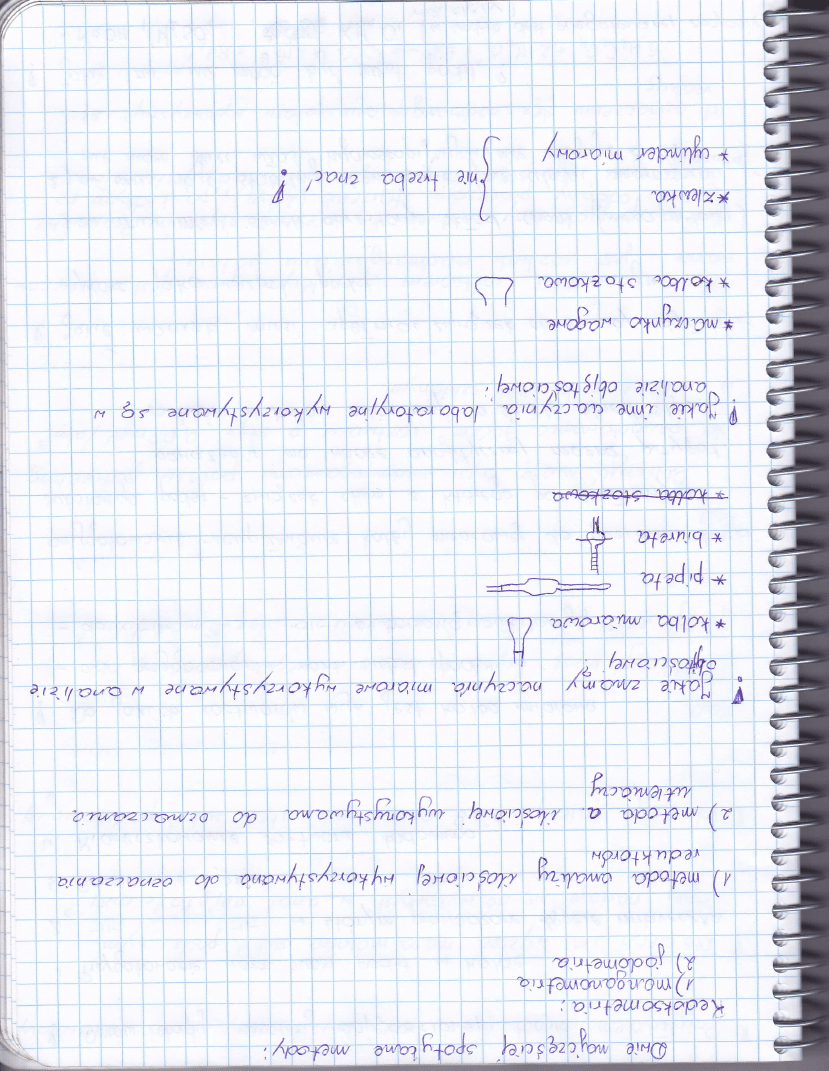 Dwie najczęściej spotykane metody:
Redoksometria:
1) manganometria
2) jodometria
1) metoda analizy ilościowej wykorzystywana do oznaczania
reduktorów
2) metoda a. ilościowej wykorzystywana do oznaczania
utleniaczy
! Jakie znamy naczynia miarowe wykorzystywane w analizie
objętościowej
* kolba miarowa
* pipeta
* biureta
* kolba stożkowa
! Jakie inne naczynia laboratoryjne wykorzystywane są w
analizie objętościowej:
* naczynko wagowe
* kolba stożkowa
* zlewka
* cylinder miarowy
} nie trzeba znać !